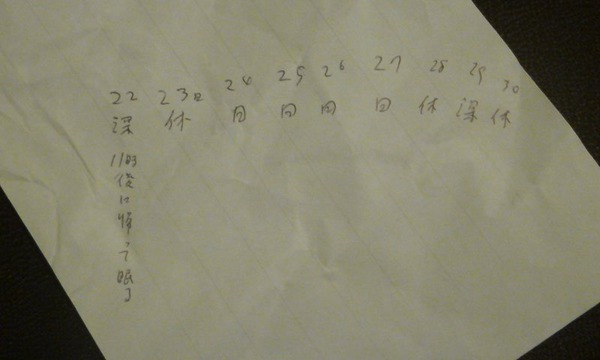 22 23日 24 25 26 27 28 29 30
深 休 日 日 日 日 休 深 休
11時後に帰って眠る